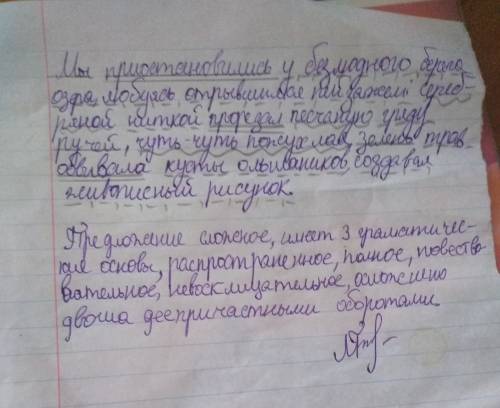 Мы приостановились у безлюдного берега
озера, любуясь открывшимся пейзажем. Сереб-
ряной ниткой прорезал песчаную гряду
ручей, чуть-чуть пожухлая зелень трав
обвивала кусты ольшаников, создавая
живописный рисунок.
Предложение сложное, имеет 3 граматичес-
кие основы, распространенное, полное, повество-
вательное, невосклицательное, осложнено
двумя деепричастными оборотами.